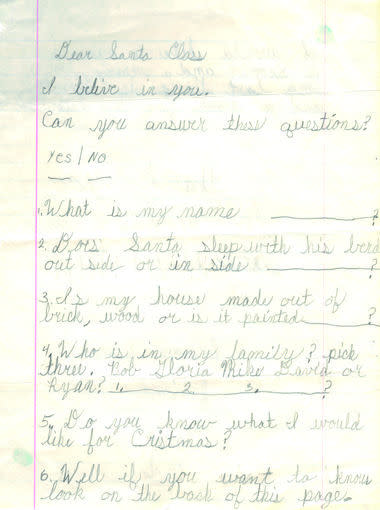 Dear Santa Class
I belive in you.
Can you answer these questions?
Yes / No
1. What is my name ?
2. Dors Santa sleep with his berd
out side or in side ?
3. Is my house made out of
brick, wood or is it painted ?
4. Who is in my family? pick
three. Rob Gloria Mike David or
Ryan? 1. 2. 3. ?
5. Do you know what I would
like for Cristmas?
6. Well if you want to know
look on the back of this page.